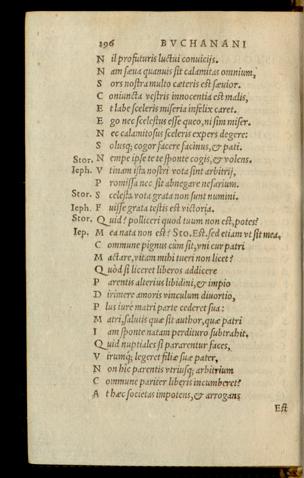 196 BVCHANANI
N il profuturis luctui conuicijs.
N am sæua quanuis sit calamitas omnium,
S ors nostra multo cæteris est sæuior.
C oniuncta vestris innocentia est malis,
E t labe sceleris miseria infelix caret.
E go nec scelestus esse queo, ni sim miser.
N ec calamitosus sceleris expers degere:
S olusq; cogor facere facinus, & pati.
Stor. N empe ipse te te sponte cogis, & volens.
Ieph. V tinam ista nostri vota sint arbitrij,
P romissa nec sit abnegare nefarium.
Stor. S celesta vota grata non sunt numini.
Ieph. F uisse grata testis est victoria.
Stor. Q uid? polliceri quod tuum non est, potes?
Iep. M ea nata non est? Sto. Est. sed etiam vt sit mea,
C ommune pignus cùm sit, vni cur patri
M actare, vitam mihi tueri non licet?
Q uòd si liceret liberos addicere
P arentis alterius libidini, & impio
D irimere amoris vinculum diuortio,
P lus iure matri parte cederet sua:
M atri, salutis quæ sit author, quæ patri
I am sponte natam perdituro subtrahit.
Q uid nuptiales si pararentur faces,
V irumq; legeret filiæ suæ pater,
N on hîc parentis vtriusq; arbitrium
C ommune pariter liberis incumberet?
A t hæc societas impotens, & arrogans
Est